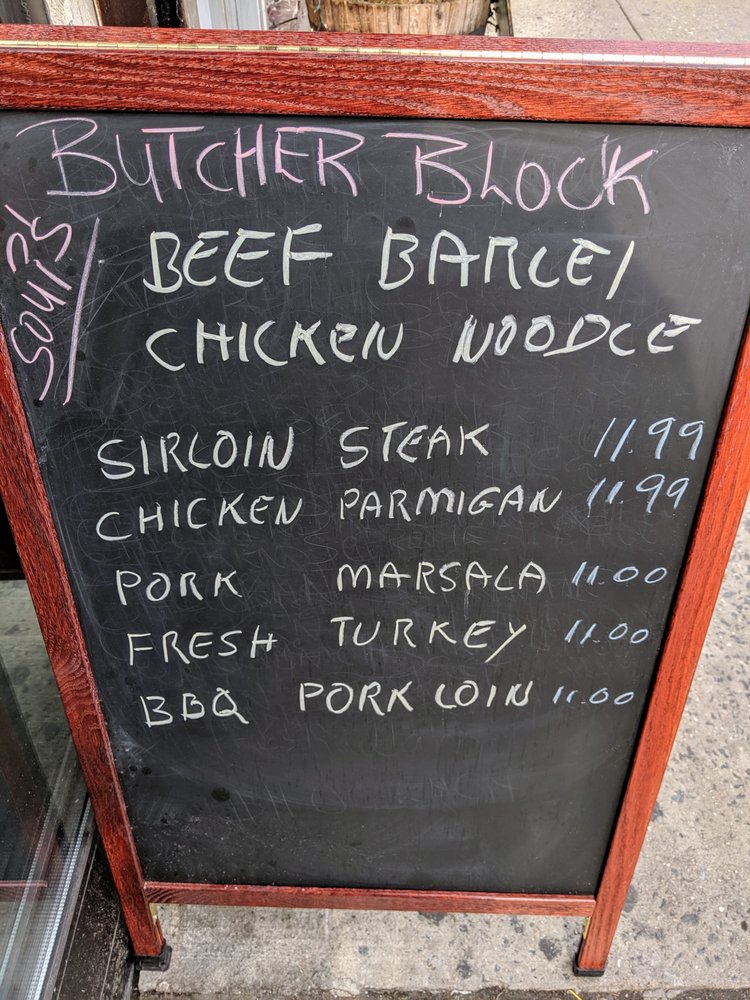 BUTCHER BLOCK
SOUPS
BEEF BARLEY
CHICKEN NOODLE
SIRLOIN STEAK 11.99
CHICKEN PARMIGAN 11.99
PORK MARSALA 11.00
FRESH TURKEY 11.00
BBQ PORK LOIN 11.00